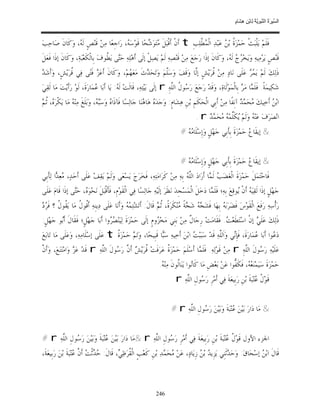 السيرة النبوية لابن هشام
فَلَمْ يَلْبَثْ حَمْزَةُ بْنُ عَبْدِ الْمُطّلِبِ t أَنْ أَقْبَلَ مُتَوَشّحًا قَوْسَهُ، رَاجِعًا مِنْ قَنْصٍ لَهُ، وَكَانَ صَاحِبَ
قَنْصٍ يَرْمِيهِ وَيَخْرُجُ لَهُ، وَكَانَ إذَا رَجَعَ مِنْ قَنْصِهِ لَمْ يَصِلْ إلَى أَهْلِهِ حَتّى يَطُوفَ بِالْكَعْبَةِ، وَكَانَ إذَا فَعَلَ
ذَلِكَ لَمْ يَمُرّ عَلَى نَادٍ مِنْ قُرَيْشٍ إلّا وَقَفَ وَسَلّمَ وَتَحَدّثَ مَعَهُمْ، وَكَانَ أَعَزّ فَتًى فِي قُرَيْشٍ، وَأَشَدّ
شَكِيمَةً. فَلَمّا مَرّ بِالْمَوْلَاةِ، وَقَدْ رَجَعَ رَسُولُ اللّهِ r إلَى بَيْتِهِ، قَالَتْ لَهُ يَا أَبَا عُمَارَةَ، لَوْ رَأَيْتَ مَا لَقِيَ
ابْنُ أَخِيكَ مُحَمّدٌ آنِفًا مِنْ أَبِي الْحَكَمِ بْنِ هِشَامٍ وَجَدَهُ هَاهُنَا جَالِسًا فَآذَاهُ وَسَبّهُ، وَبَلَغَ مِنْهُ مَا يَكْرَهُ، ثُمّ
انْصَرَفَ عَنْهُ وَلَمْ يُكَلّمْهُ مُحَمّدٌ r .
& إيقَاعُ حَمْزَةَ بِأَبِي جَهْلٍ وَإِسْلَامُهُ #
& إيقَاعُ حَمْزَةَ بِأَبِي جَهْلٍ وَإِسْلَامُهُ #
فَاحْتَمَلَ حَمْزَةَ الْغَضَبُ لَمّا أَرَادَ اللّهُ بِهِ مِنْ كَرَامَتِهِ، فَخَرَجَ يَسْعَى وَلَمْ يَقِفْ عَلَى أَحَدٍ، مُعِدّا لِأَبِي
جَهْلٍ إذَا لَقِيَهُ أَنْ يُوقِعَ بِهِ؛ فَلَمّا دَخَلَ الْمَسْجِدَ نَظَرَ إلَيْهِ جَالِسًا فِي الْقَوْمِ، فَأَقْبَلَ نَحْوَهُ، حَتّى إذَا قَامَ عَلَى
رَأْسِهِ رَفَعَ الْقَوْسَ فَضَرَبَهُ بِهَا فَشَجّهُ شَجّةً مُنْكَرَةً، ثُمّ قَالَ أَتَشْتِمُهُ وَأَنَا عَلَى دِينِهِ أَقُولُ مَا يَقُولُ ؟ فَرُدّ
ذَلِكَ عَلَيّ إنْ اسْتَطَعْتَ. فَقَامَتْ رِجَالٌ مِنْ بَنِي مَخْزُومٍ إلَى حَمْزَةَ لِيَنْصُرُوا أَبَا جَهْلٍ؛ فَقَالَ أَبُو جَهْلٍ
دَعُوا أَبَا عُمَارَةَ، فَإِنّي وَاَللّهِ قَدْ سَبَبْتُ ابْنَ أَخِيهِ سَبّا قَبِيحًا، وَتَمّ حَمْزَةُ t عَلَى إسْلَامِهِ، وَعَلَى مَا تَابَعَ
عَلَيْهِ رَسُولَ اللّهِ r مِنْ قَوْلِهِ. فَلَمّا أَسْلَمَ حَمْزَةُ عَرَفَتْ قُرَيْشٌ أَنّ رَسُولَ اللّهِ r قَدْ عَزّ وَامْتَنَعَ، وَأَنّ
حَمْزَةَ سَيَمْنَعُهُ، فَكَفّوا عَنْ بَعْضِ مَا كَانُوا يَنَالُونَ مِنْهُ
قَوْلُ عُتْبَةَ بْنِ رَبِيعَةَ فِي أَمْرِ رَسُولِ اللّهِ r
& مَا دَارَ بَيْنَ عُتْبَةَ وَبَيْنَ رَسُولِ اللّهِ r #
الجزء الأول قَوْلُ عُتْبَةَ بْنِ رَبِيعَةَ فِي أَمْرِ رَسُولِ اللّهِ r &مَا دَارَ بَيْنَ عُتْبَةَ وَبَيْنَ رَسُولِ اللّهِ r #
قَالَ ابْنُ إسْحَاقَ وَحَدّثَنِي يَزِيدُ بْنُ زِيَادٍ، عَنْ مُحَمّدِ بْنِ كَعْبٍ الْقُرَظِيّ، قَالَ حُدّثْتُ أَنّ عُتْبَةَ بْنَ رَبِيعَةَ،
246